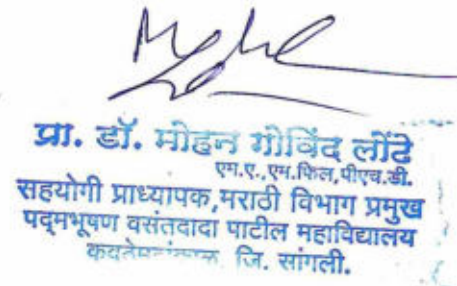 प्रा. डॉ. मोहन गोविंद लोंढे
एम.ए.,एम.फिल,पीएच.डी.
सहयोगी प्राध्यापक,मराठी विभाग प्रमुख
पद्मभूषण वसंतदादा पाटील महाविद्यालय
जि. सांगली.